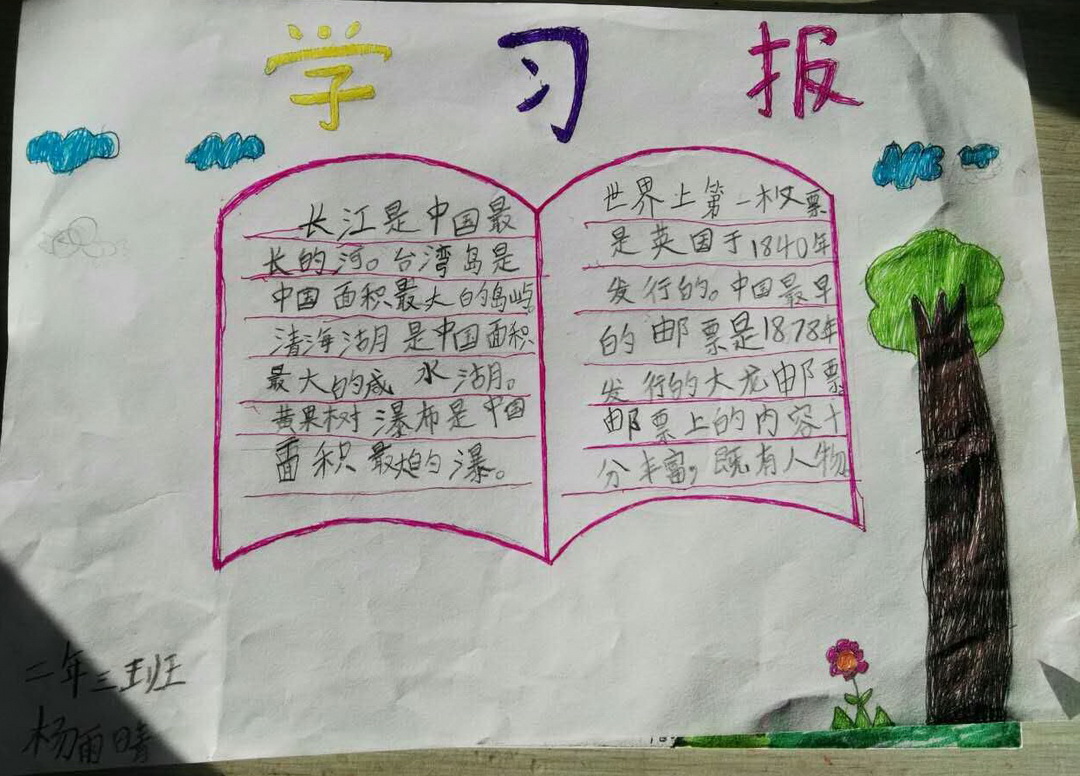 学习报
长江是中国最
长的河。台湾岛是
中国面积最大的岛屿。
清海湖是中国面积
最大的咸水湖。
黄果树瀑布是中国
面积最大的瀑。
世界上第一枚票
是英国于1840年
发行的。中国最早
的邮票是1878年
发行的大龙邮票
邮票上的内容十
分丰富,既有人物。
二年三班
杨雨晴